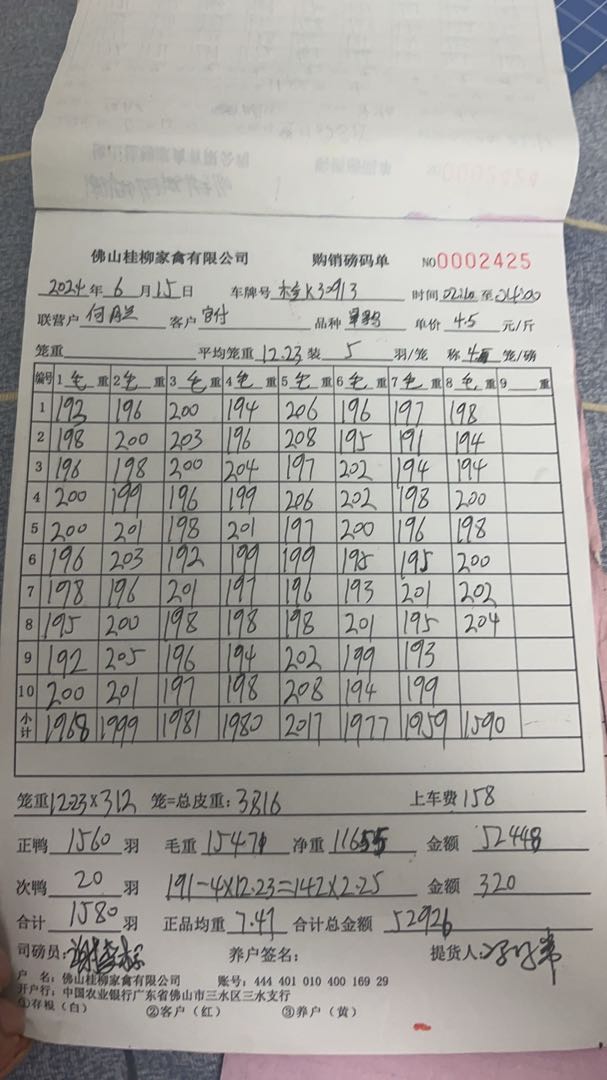 佛山桂柳家禽有限公司 购销磅码单 NO0002425
2024年 6 月 15日 车牌号 K30913 时间 至 04:00
联营户 客户 品种 单价 4.5 元/斤
笼重 平均笼重 12.23 装 5 羽/笼 称 4 笼/磅
编号 1 毛 重 2 毛 重 3 毛 重 4 毛 重 5 毛 重 6 毛 重 7 毛 重 8 毛 重 9 重
1 193 196 200 194 206 196 197 198
2 198 200 203 196 208 195 191 194
3 196 198 200 204 197 202 194 194
4 200 199 196 199 206 202 198 200
5 200 201 198 201 197 200 196 198
6 196 203 192 199 199 195 195 200
7 198 196 201 197 196 193 201 202
8 195 200 198 198 198 201 195 204
9 192 205 196 194 202 199 193
10 200 201 197 198 208 194 199
小计 1968 1999 1981 1980 2017 1977 1959 1590
笼重 12.23×312 笼=总皮重: 3816 上车费 158
正鸭 1560 羽 毛重 15471 净重 11655 金额 52448
次鸭 20 羽 191-4×12.23=142×2.25 金额 320
合计 1580 羽 正品均重 7.47 合计总金额 52926
司磅员: 养户签名: 提货人:
户 名: 佛山桂柳家禽有限公司 账号: 444 401 010 400 169 29
开户行: 中国农业银行广东省佛山市三水区三水支行
①存根(白) ②客户(红) ③养户(黄)